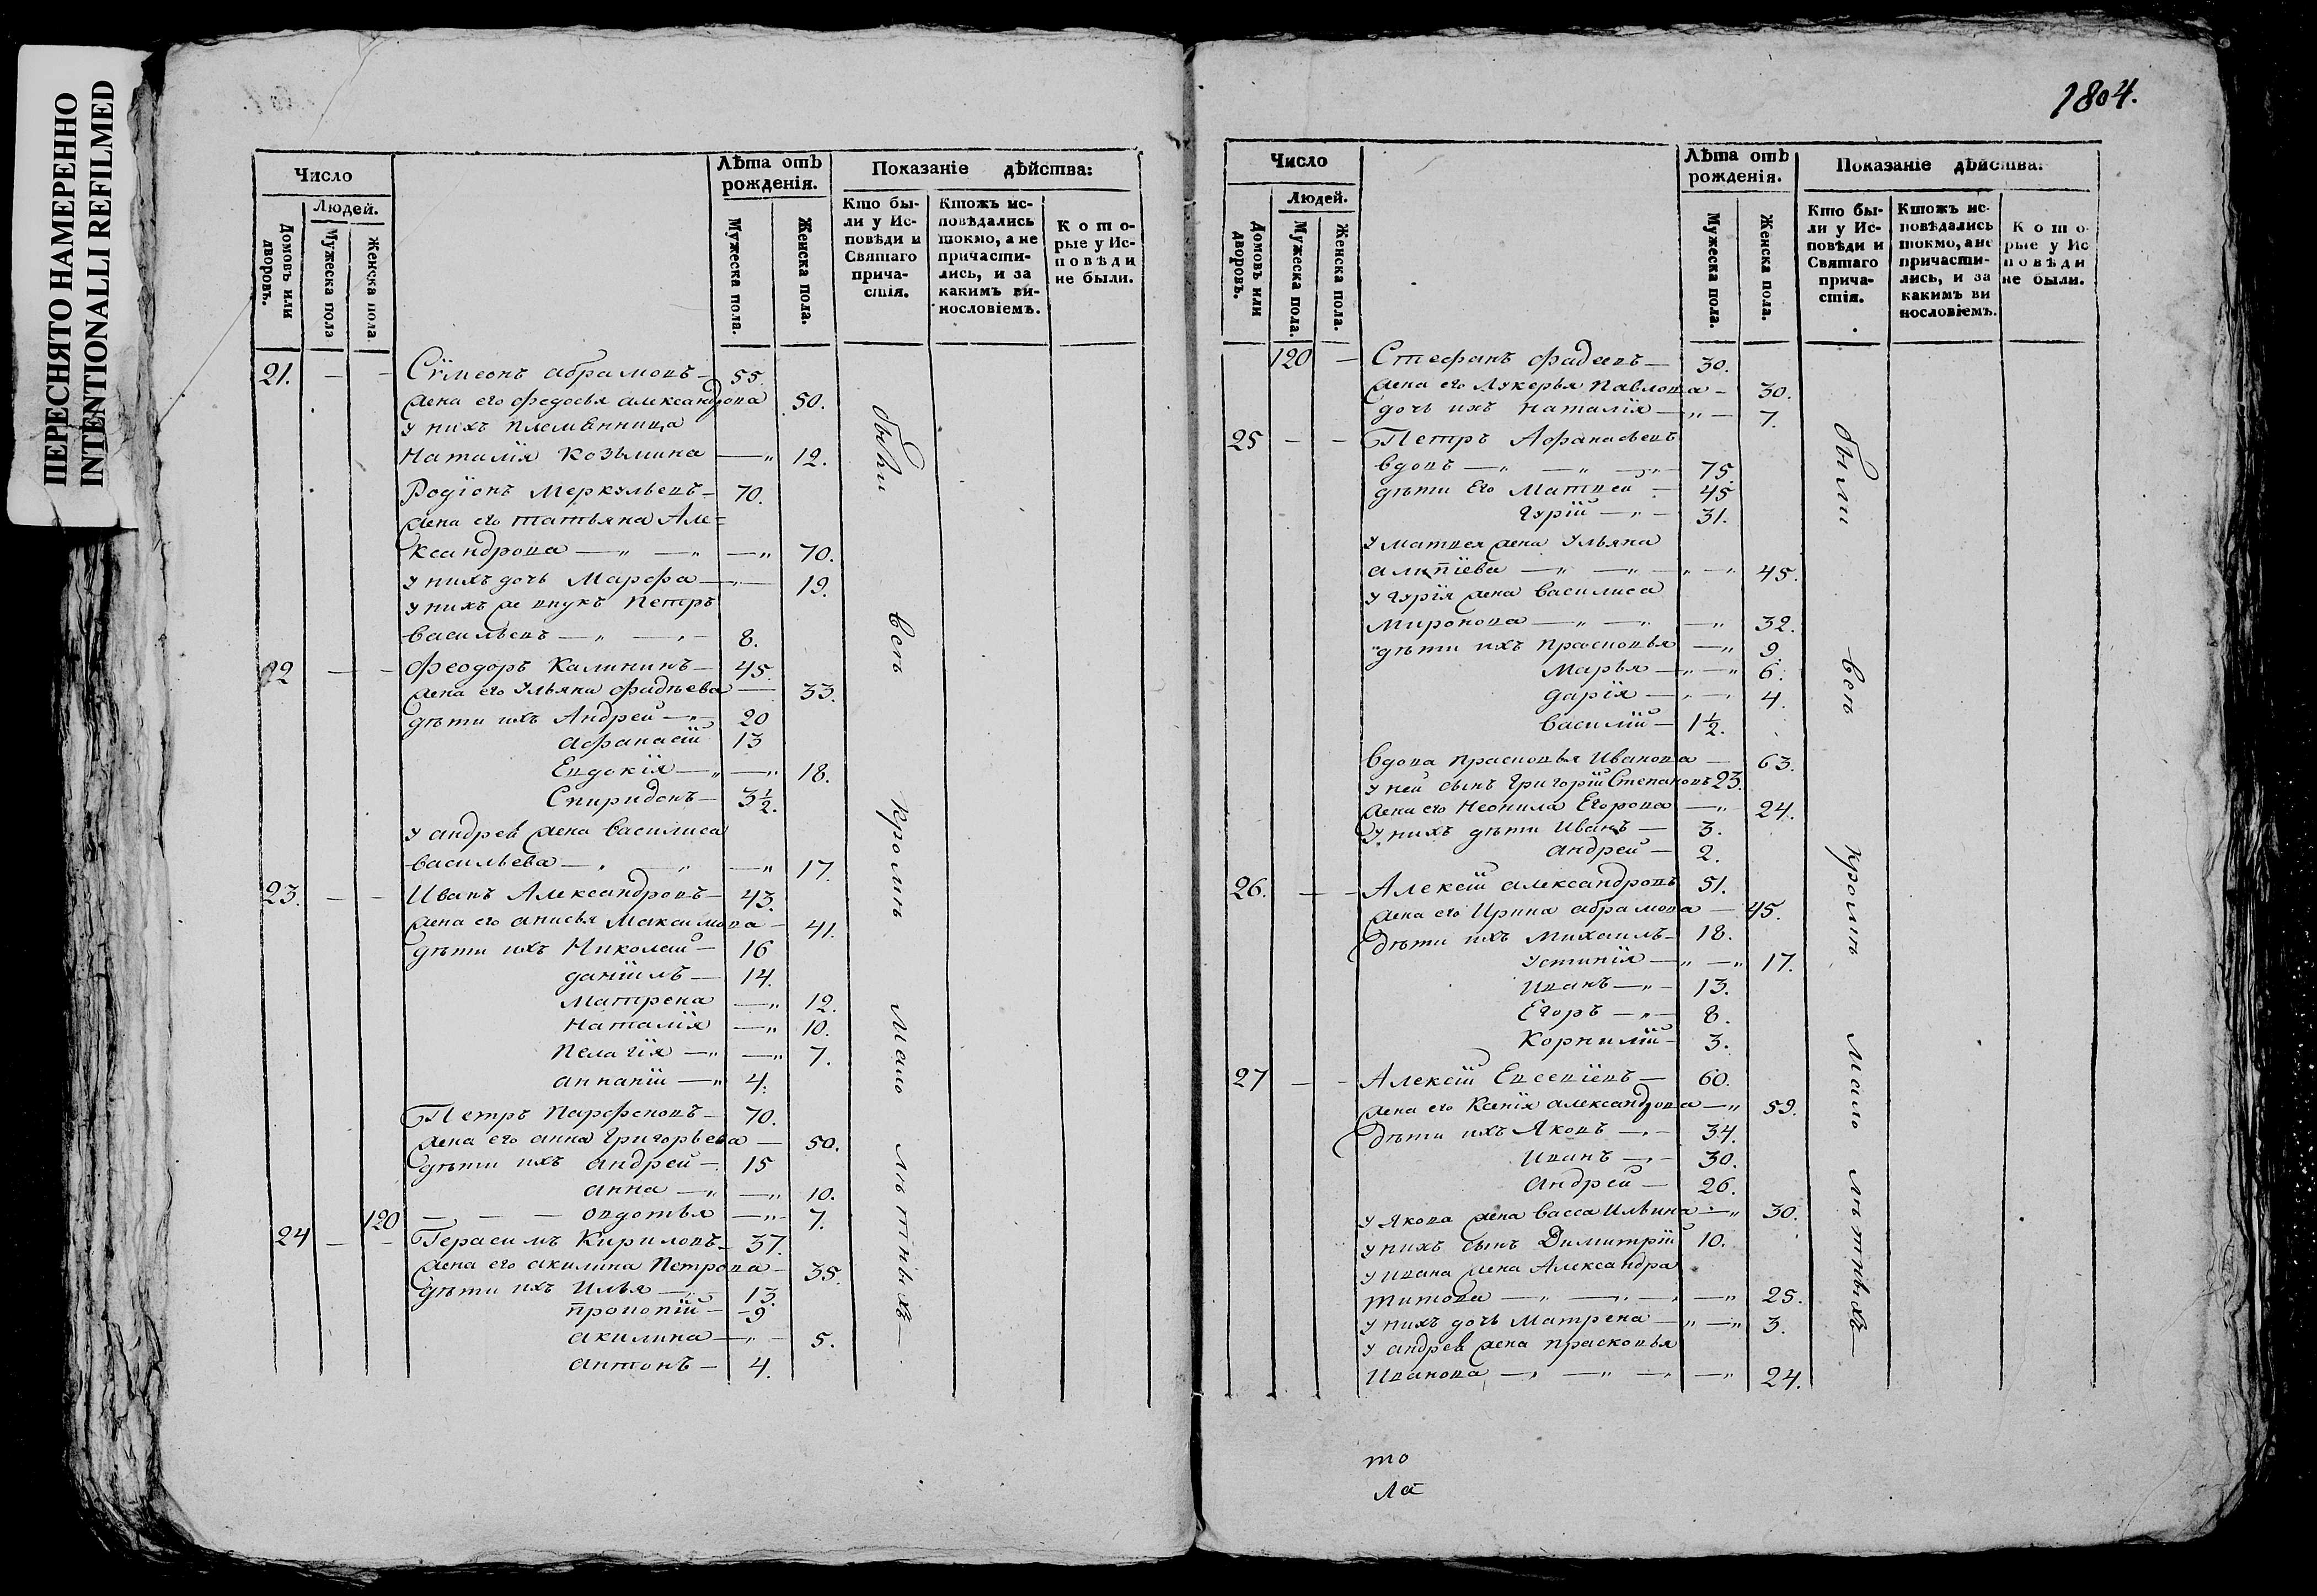 ПЕРЕСНЯТО НАМЕРЕННО
INTENTIONALLI REFILMED
Число
Людей.
Домовъ или дворовъ.
Мужеска пола
Женска пола
Лѣта отъ рожденія.
Мужеска пола.
Женска пола.
Показаніе дѣйства:
Кто бы-
ли у Ис-
повѣди и
Святаго
прича-
стія.
Ктожъ ис-
повѣдались
токмо, а не
причасти-
лись, и за
какимъ ви-
нословіемъ.
Кото-
рые у Ис-
повѣди
не были.
21. — - Сѵмеонъ абрамовъ — 55.
жена его федосья александрова 50.
у нихъ племѣнница
Наталія Козьмина —„ 12.
Родіонъ Меркульевъ — 70.
жена его татьяна Але=
ксандрова —„ —„ —„ 70.
у нихъ дочь Марфа —„— 19.
у нихъ же внукъ Петръ
васильевъ —„ —„— 8.
22 — - Феодоръ Калининъ — 45.
жена его Ульяна фадѣева — 33.
дѣти ихъ Андрей —„ 20
афанасій 13
Евдокія —„ —„ 18.
Спиридонъ — 3 1/2.
у андрев жена василиса
васильева —„ —„ —„ 17.
23. — - Иванъ Александровъ — 43.
жена его анисья Максимова — 41.
дѣти ихъ Николай — 16
даніилъ — 14.
Матрена —„ 12.
Наталія —„ 10.
Пелагія —„ —„ 7.
ананій —„ 4.
Петръ Парфеновъ — 70.
жена его анна Григорьева — 50.
дѣти ихъ андрей — 15
анна —„ —„ 10.
120 — — — овдотья —„— 7.
24 — - Герасимъ Кириловъ — 37.
жена его акилина Петрова — 35.
дѣти ихъ Илья —„ 13.
прокопій — 9
акилина —„ — 5.
антонъ — 4.
были всѣ кромѣ мало лѣтныхъ —
1804.
Число
Людей.
Домовъ или дворовъ.
Мужеска пола.
Женска пола.
Лѣта отъ рожденія.
Мужеска пола.
Женска пола.
Показаніе дѣйства:
Кто бы-
ли у Ис-
повѣди и
Святаго
прича-
стія.
Ктожъ ис-
повѣдались
токмо, а не
причасти-
лись, и за
какимъ ви
нословіемъ.
Кото-
рые у Ис
повѣди
не были.
120 — Стефанъ фадеевъ — 30.
жена его Лукерья Павлова — 30.
дочь ихъ Наталія —„— 7.
25 — - Петръ Афанасьевъ
вдовъ —„ —„ —„— 75.
дѣти Его Матвей — 45
Гурій —„— 31.
у матвея жена Ульяна
алипіева —„ —„ —„ —„ 45.
у Гурія жена василиса
Миронова —„ —„ —„ 32.
дѣти ихъ прасковья —„ 9.
Марья —„ —„ 6.
дарія —„ —„ 4.
василій — 1 1/2.
вдова прасковья Иванова — 63.
у ней сынъ Григорій Степановъ 23.
жена его Неонила Егорова —„ 24.
у нихъ дѣти Иванъ — 3.
андрей — 2.
26. — - Алексій александровъ 51.
жена его Ирина абрамова — 45.
дѣти ихъ Михаилъ — 18.
устинія —„ —„ 17.
Иванъ —„— 13.
Егоръ —„— 8.
Корнилій — 3.
27 — - Алексій Евсевіевъ — 60.
жена его Ксенія александрова —„ 59.
дѣти ихъ Яковъ —„— 34.
Иванъ —„— 30.
Андрей — 26.
у Якова жена васса Ильина —„ 30.
у нихъ сынъ Димитрій 10.
у ивана жена Александра
титова —„ —„ —„ —„ 25.
у нихъ дочь Матрена —„ —„ 3.
у андрев жена прасковья
Иванова —„ —„ —„ —„ 24.
были всѣ кромѣ мало лѣтныхъ —
то
ла